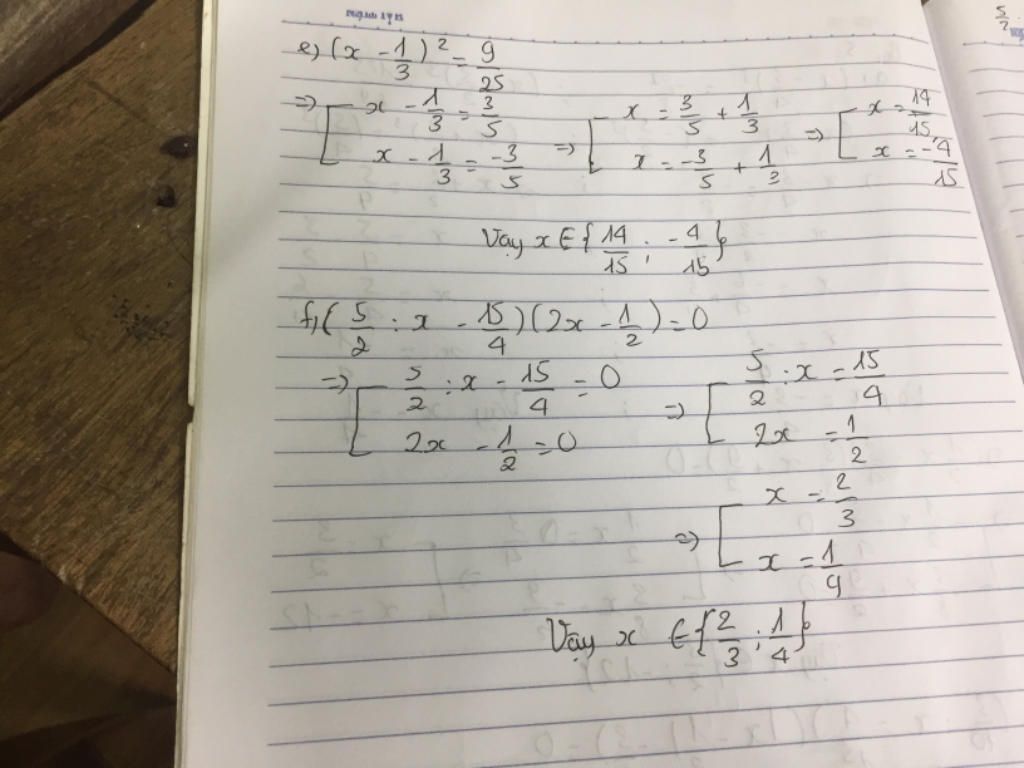 e) (x - 1/3)² = 9/25
=> [ x - 1/3 = 3/5 ; x - 1/3 = -3/5 => [ x = 3/5 + 1/3 ; x = -3/5 + 1/3 => [ x = 14/15 ; x = -4/15
Vậy x ∈ {14/15 ; -4/15}
f) (5/2 : x - 15/4)(2x - 1/2) = 0
=> [ 5/2 : x - 15/4 = 0 ; 2x - 1/2 = 0 => [ 5/2 : x = 15/4 ; 2x = 1/2
=> [ x = 2/3 ; x = 1/4
Vậy x ∈ {2/3 ; 1/4}